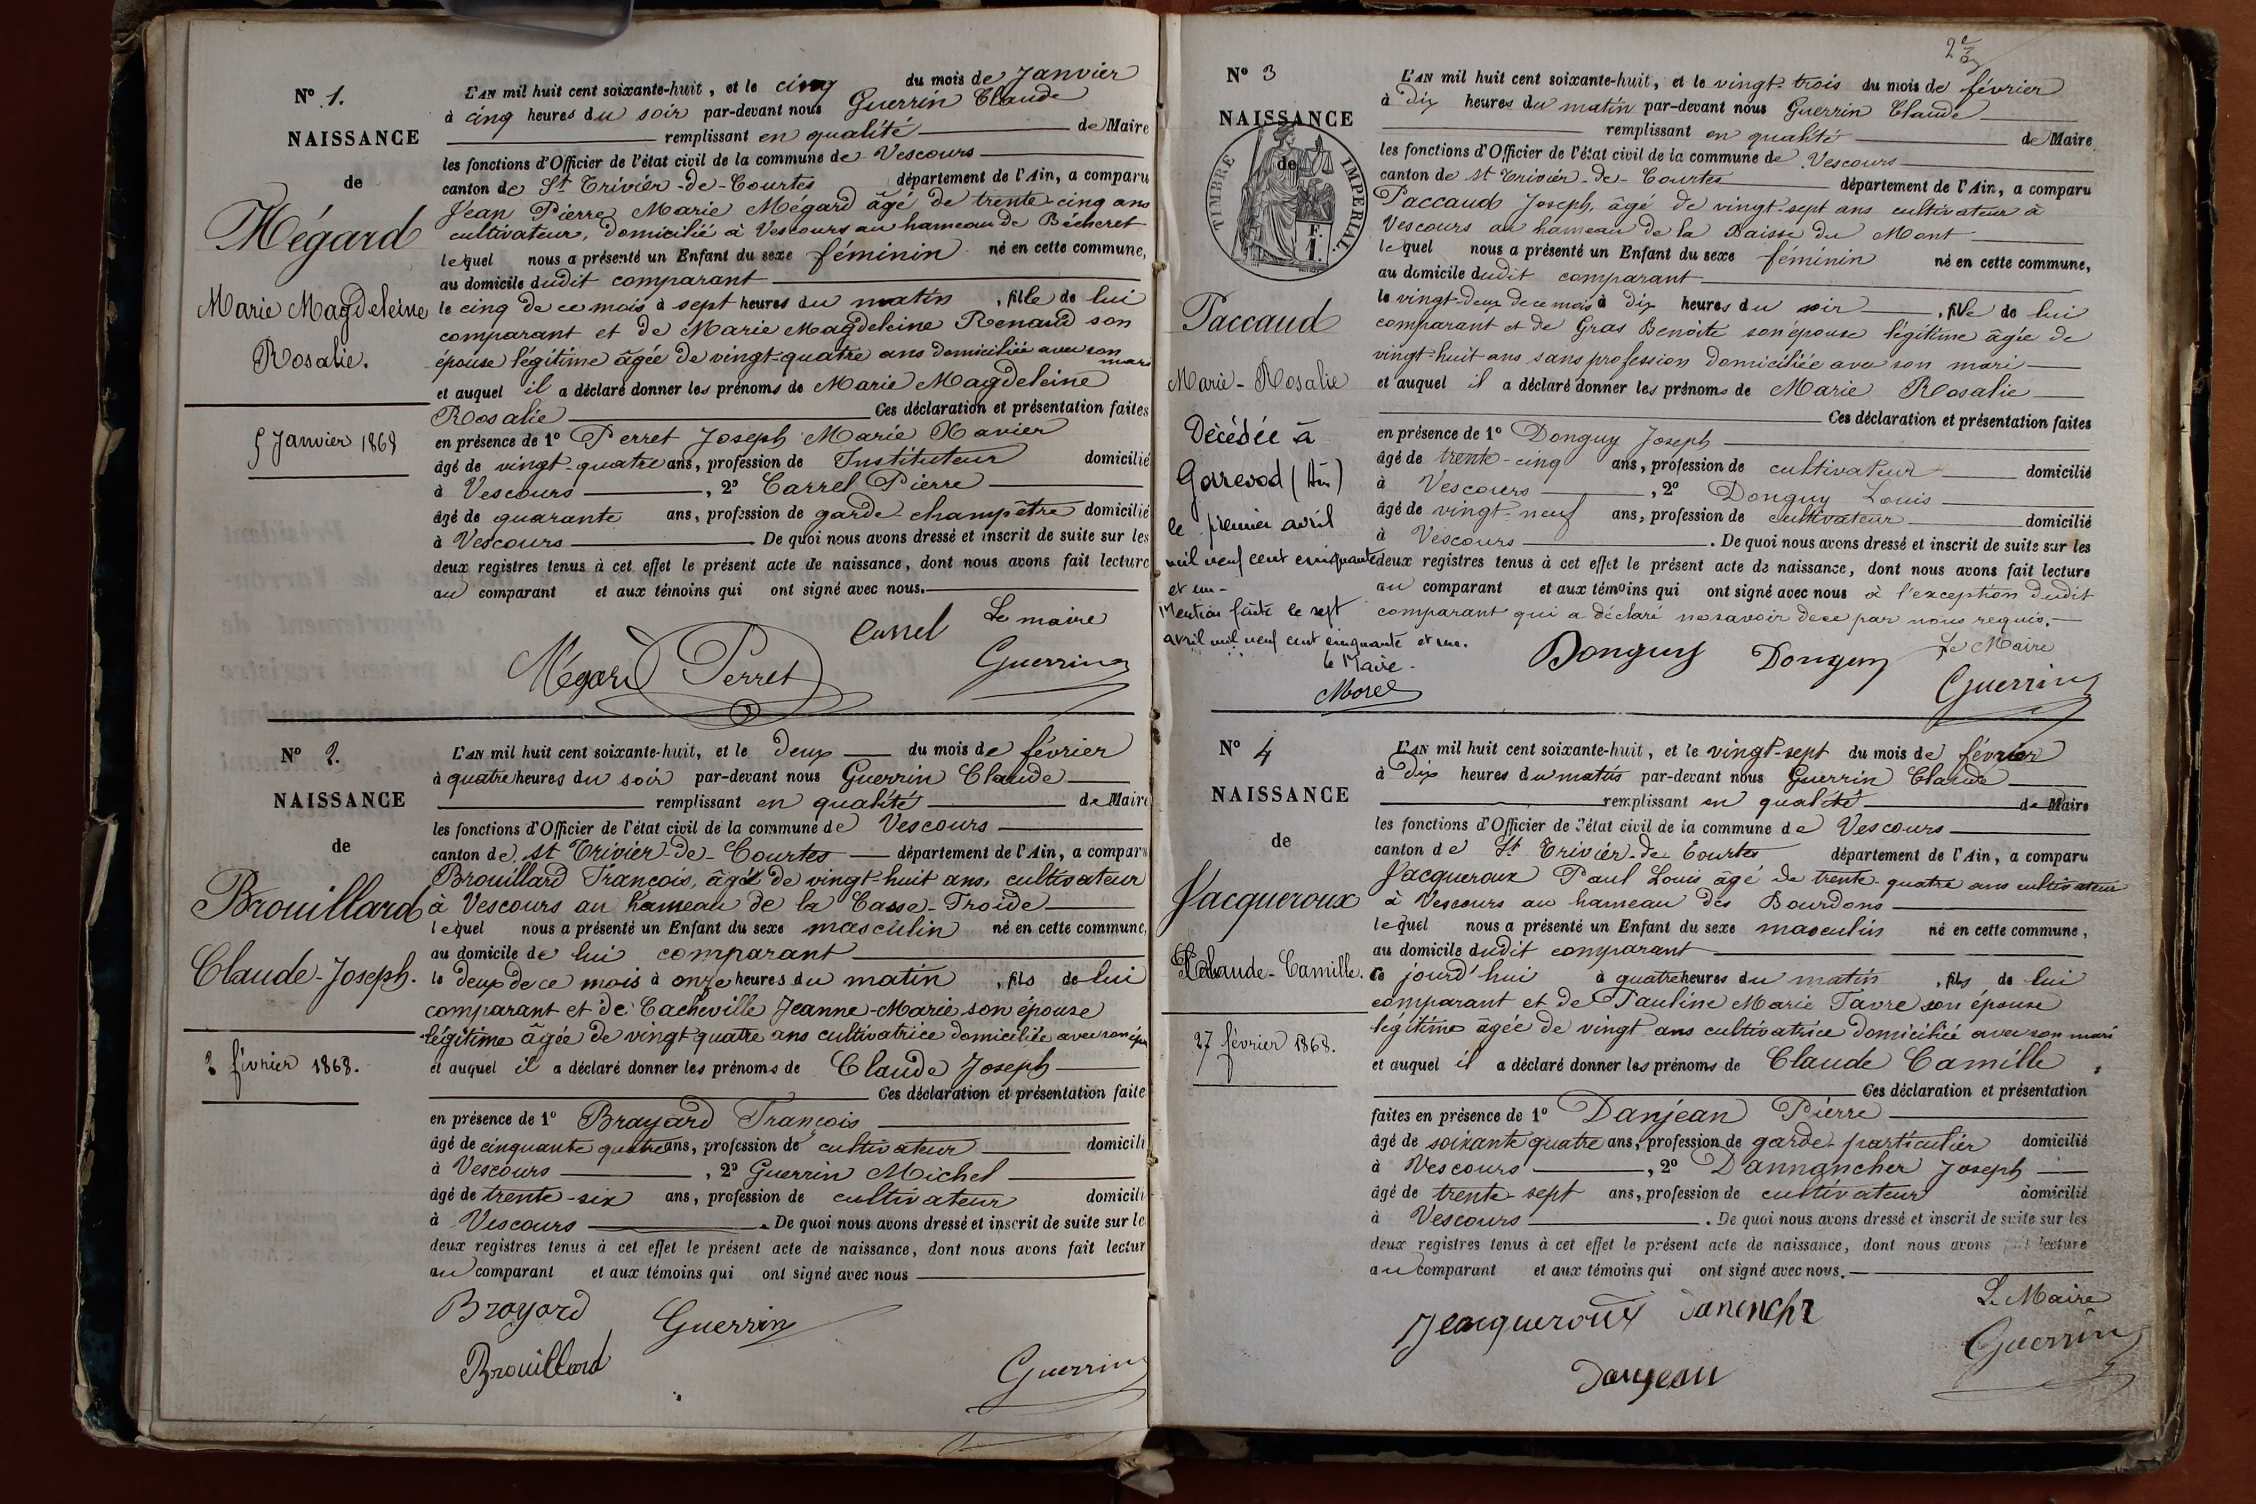 N° 1.
NAISSANCE
de
Mégard
Marie Magdeleine
Rosalie.
5 Janvier 1868
L'AN mil huit cent soixante-huit, et le cinq du mois de Janvier
à cinq heures du soir par-devant nous Guerrin Claude
remplissant en qualité de Maire
les fonctions d'Officier de l'état civil de la commune de Vescours
canton de St Trivier-de-Courtes département de l'Ain, a comparu
Jean Pierre Marie Mégard âgé de trente-cinq ans
cultivateur, domicilié à Vescours au hameau de Bécheret
lequel nous a présenté un Enfant du sexe féminin né en cette commune,
au domicile dudit comparant
le cinq de ce mois à sept heures du matin, fille de lui
comparant et de Marie Magdeleine Renaud son
épouse légitime âgée de vingt-quatre ans domiciliée avec son mari
et auquel il a déclaré donner les prénoms de Marie Magdeleine
Rosalie Ces déclaration et présentation faites
en présence de 1° Perret Joseph Marie Xavier
âgé de vingt-quatre ans, profession de Instituteur domicilié
à Vescours, 2° Carrel Pierre
âgé de quarante ans, profession de garde-champêtre domicilié
à Vescours. De quoi nous avons dressé et inscrit de suite sur les
deux registres tenus à cet effet le présent acte de naissance, dont nous avons fait lecture
au comparant et aux témoins qui ont signé avec nous.
Carrel Le maire
Mégard Perret Guerrin
N° 2.
NAISSANCE
de
Brouillard
Claude-Joseph.
2 février 1868.
L'AN mil huit cent soixante-huit, et le deux du mois de février
à quatre heures du soir par-devant nous Guerrin Claude
remplissant en qualité de Maire
les fonctions d'Officier de l'état civil de la commune de Vescours
canton de St Trivier-de-Courtes département de l'Ain, a comparu
Brouillard François, âgé de vingt-huit ans, cultivateur
à Vescours au hameau de la Casse-Froide
lequel nous a présenté un Enfant du sexe masculin né en cette commune,
au domicile de lui comparant
le deux de ce mois à onze heures du matin, fils de lui
comparant et de Cacheville Jeanne-Marie son épouse
légitime âgée de vingt-quatre ans cultivatrice domiciliée avec son
et auquel il a déclaré donner les prénoms de Claude Joseph
Ces déclaration et présentation faite
en présence de 1° Brayard François
âgé de cinquante quatre ans, profession de cultivateur domicili
à Vescours, 2° Guerrin Michel
âgé de trente-six ans, profession de cultivateur domicili
à Vescours. De quoi nous avons dressé et inscrit de suite sur le
deux registres tenus à cet effet le présent acte de naissance, dont nous avons fait lectur
au comparant et aux témoins qui ont signé avec nous
Brayard Guerrin
Brouillard Guerrin
N° 3
NAISSANCE
de
TIMBRE IMPERIAL
Paccaud
Marie-Rosalie
Décédée à
Gorrevod (Ain)
le premier avril
mil neuf cent cinquante
et un-
Mention faite le sept
avril mil neuf cent cinquante et un.
Le Maire.
Morel
L'AN mil huit cent soixante-huit, et le vingt-trois du mois de février
à Dix heures du matin par-devant nous Guerrin Claude
remplissant en qualité de Maire
les fonctions d'Officier de l'état civil de la commune de Vescours
canton de St Trivier-de-Courtes département de l'Ain, a comparu
Paccaud Joseph, âgé de vingt-sept ans cultivateur à
Vescours au hameau de la Baisse du Mont
lequel nous a présenté un Enfant du sexe féminin né en cette commune,
au domicile dudit comparant
le vingt-deux de ce mois à dix heures du soir, fille de lui
comparant et de Gras Benoite son épouse légitime âgée de
vingt-huit ans sans profession domiciliée avec son mari
et auquel il a déclaré donner les prénoms de Marie Rosalie
Ces déclaration et présentation faites
en présence de 1° Donguy Joseph
âgé de trente-cinq ans, profession de cultivateur domicilié
à Vescours, 2° Donguy Louis
âgé de vingt-neuf ans, profession de cultivateur domicilié
à Vescours. De quoi nous avons dressé et inscrit de suite sur les
deux registres tenus à cet effet le présent acte de naissance, dont nous avons fait lecture
au comparant et aux témoins qui ont signé avec nous à l'exception dudit
comparant qui a déclaré ne savoir de ce par nous requis.
Donguy Donguy Le Maire
Guerrin
N° 4
NAISSANCE
de
Jacqueroux
Claude-Camille.
27 février 1868.
L'AN mil huit cent soixante-huit, et le vingt-sept du mois de février
à Dix heures du matin par-devant nous Guerrin Claude
remplissant en qualité de Maire
les fonctions d'Officier de l'état civil de la commune de Vescours
canton de St Trivier-de-Courtes département de l'Ain, a comparu
Jacqueroux Paul Louis âgé de trente-quatre ans cultivateur
à Vescours au hameau des Bourdons
lequel nous a présenté un Enfant du sexe masculin né en cette commune,
au domicile dudit comparant
Ce jourd'hui à quatre heures du matin, fils de lui
comparant et de Pauline Marie Favre son épouse
légitime âgée de vingt ans cultivatrice domiciliée avec son mari
et auquel il a déclaré donner les prénoms de Claude Camille
Ces déclaration et présentation
faites en présence de 1° Danjean Pierre
âgé de soixante quatre ans, profession de garde-particulier domicilié
à Vescours, 2° Dannancher Joseph
âgé de trente-sept ans, profession de cultivateur domicilié
à Vescours. De quoi nous avons dressé et inscrit de suite sur les
deux registres tenus à cet effet le présent acte de naissance, dont nous avons fait lecture
au comparant et aux témoins qui ont signé avec nous.
Jacqueroux Le Maire
Danjean Guerrin